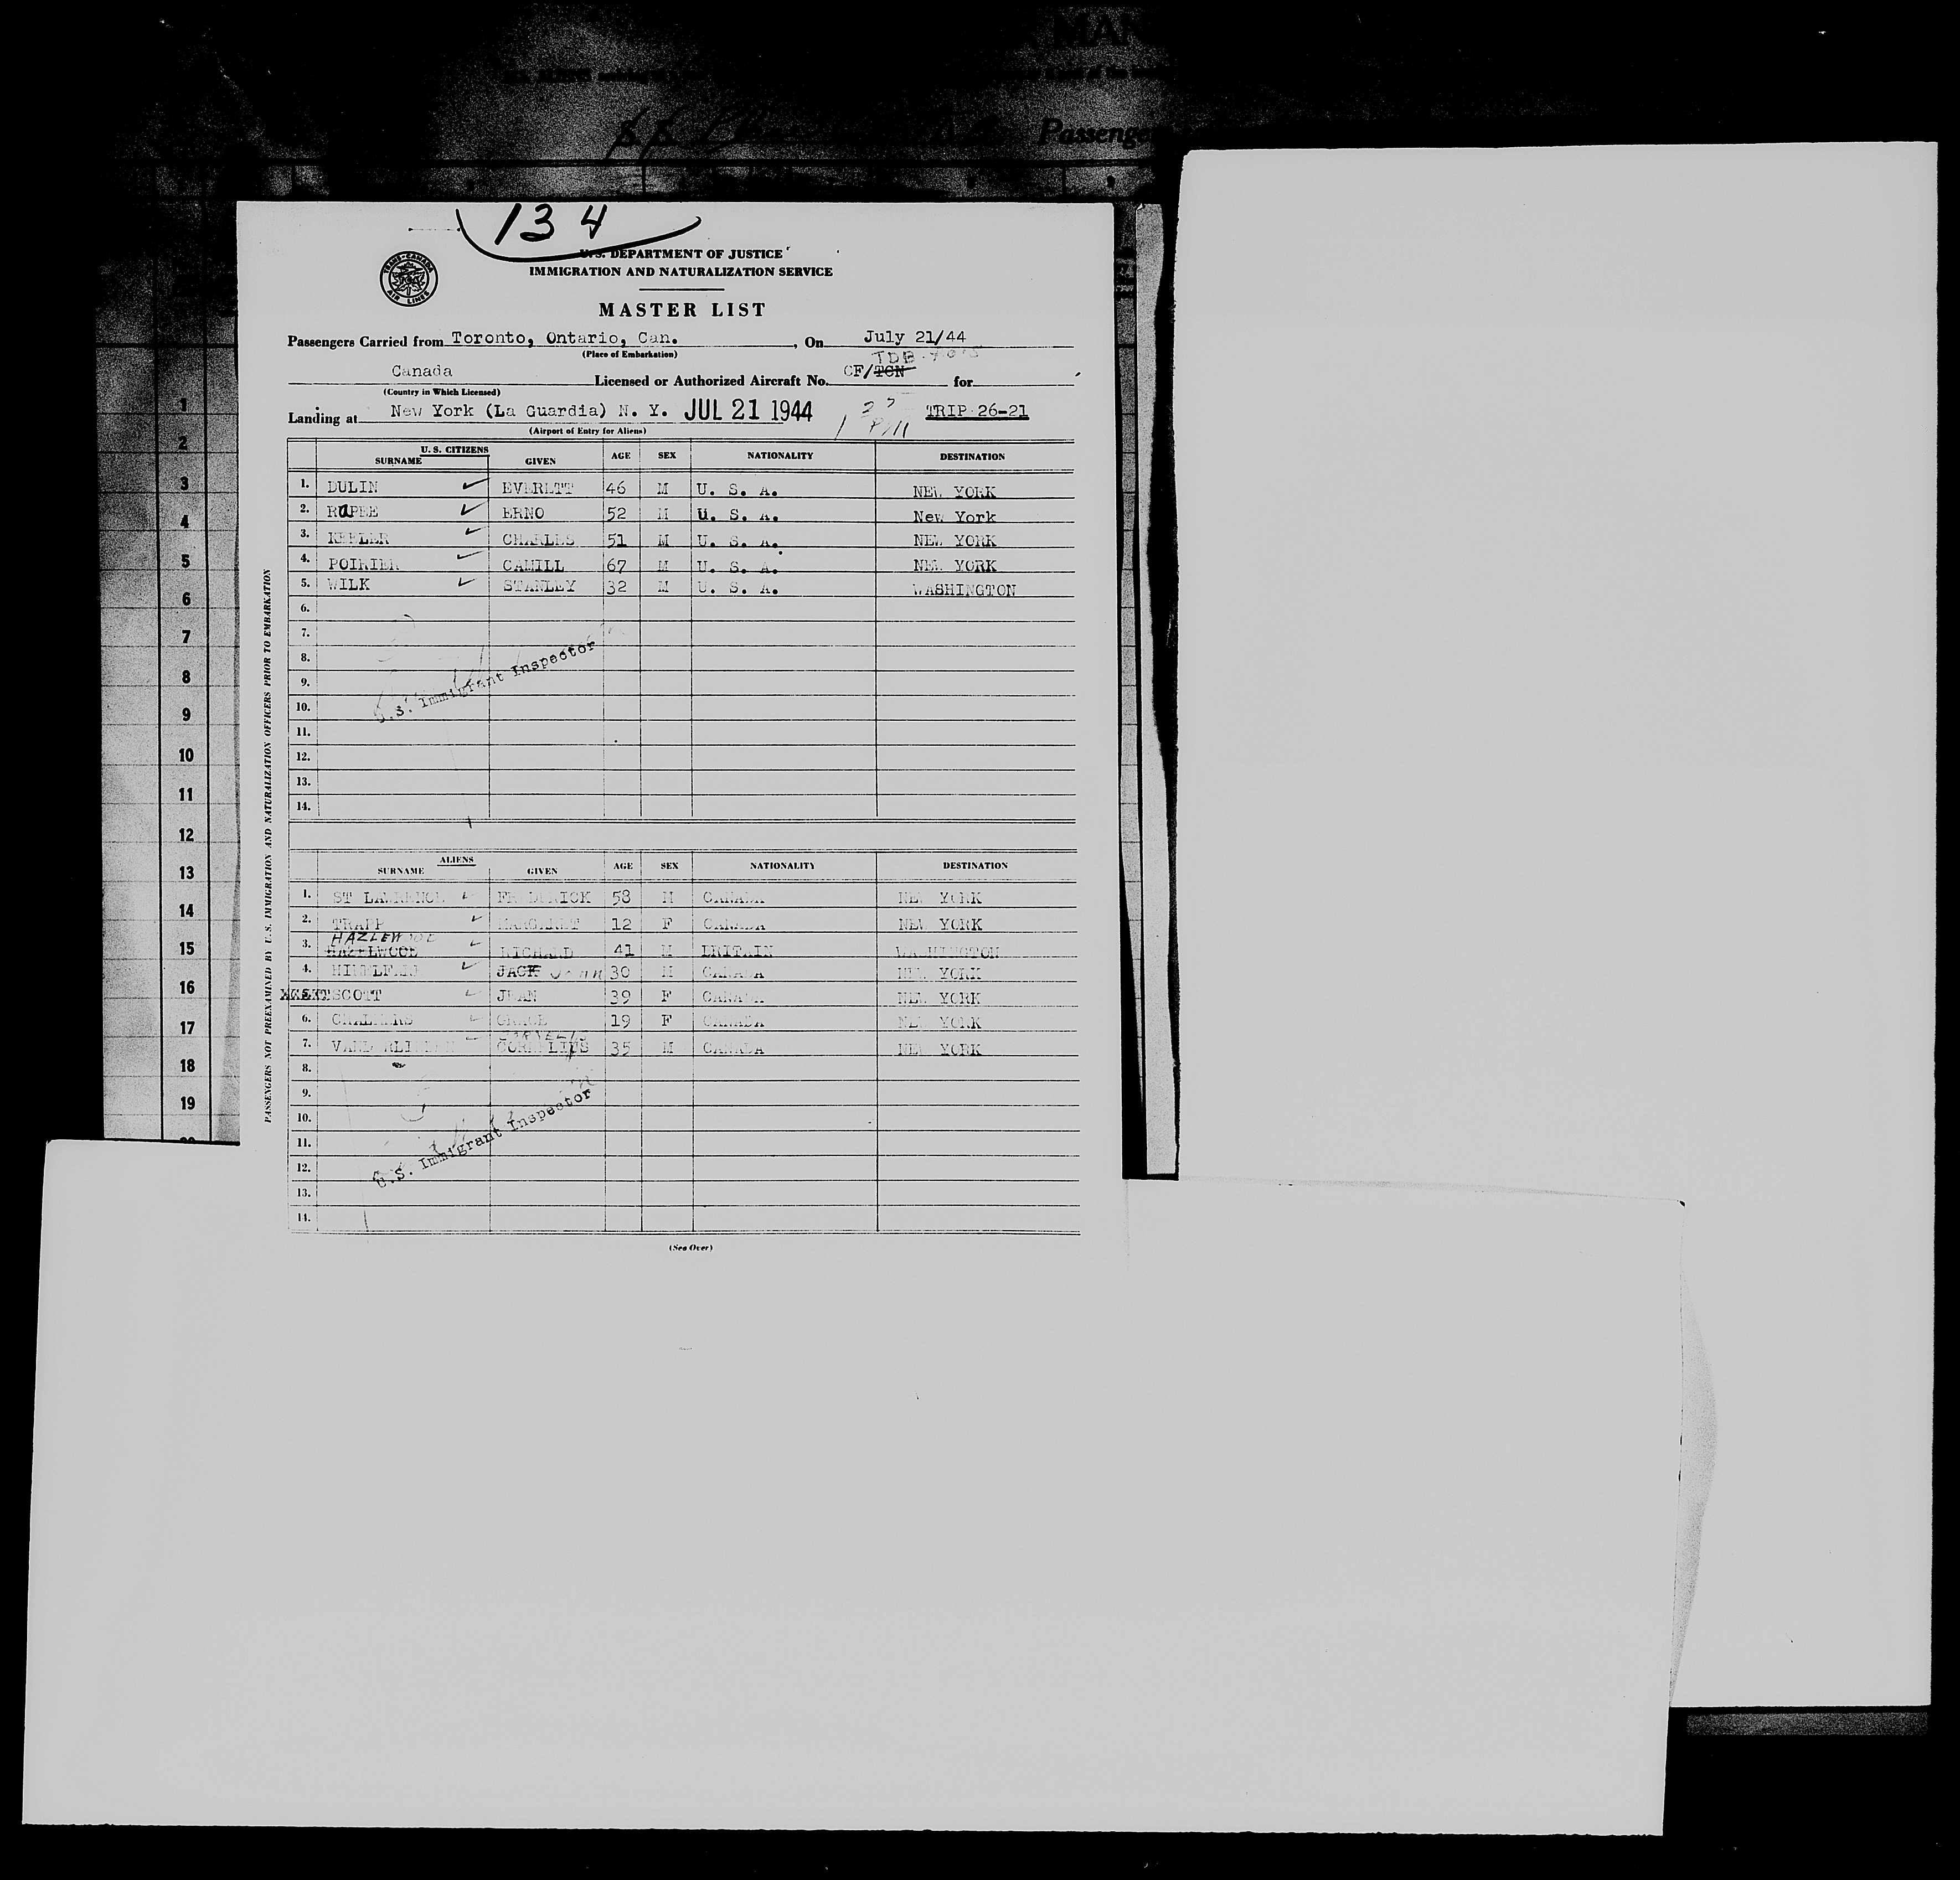 MAN
Passenge
134
TRANS-CANADA AIR LINES
U.S. DEPARTMENT OF JUSTICE
IMMIGRATION AND NATURALIZATION SERVICE
MASTER LIST
Passengers Carried from Toronto, Ontario, Can. , On July 21/44
(Place of Embarkation)
TDB
Canada Licensed or Authorized Aircraft No. CF/TCN for
(Country in Which Licensed)
Landing at New York (La Guardia) N. Y. JUL 21 1944 TRIP 26-21
(Airport of Entry for Aliens)
U. S. CITIZENS
SURNAME GIVEN AGE SEX NATIONALITY DESTINATION
1. DULIN EVERETT 46 M U. S. A. NEW YORK
2. RUPEE ERNO 52 M U. S. A. New York
3. KEELER CHARLES 51 M U. S. A. NEW YORK
4. POIRIER CAMILL 67 M U. S. A. NEW YORK
5. WILK STANLEY 32 M U. S. A. WASHINGTON
6.
7.
8.
9.
10.
11.
12.
13.
14.
U.S. Immigrant Inspector
ALIENS
SURNAME GIVEN AGE SEX NATIONALITY DESTINATION
1. ST LAWRENCE FREDERICK 58 M CANADA NEW YORK
2. TRAPP MARGARET 12 F CANADA NEW YORK
HAZLEWOOD
3. HAZELWOOD RICHARD 41 M BRITAIN WASHINGTON
4. JACK John 30 M CANADA NEW YORK
5. SCOTT JEAN 39 F CANADA NEW YORK
6. CHALMERS GRACE 19 F CANADA NEW YORK
7. VANDERLINDEN CORNELIUS 35 M CANADA NEW YORK
8.
9.
10.
11.
12.
13.
14.
U.S. Immigrant Inspector
(See Over)
PASSENGERS NOT PREEXAMINED BY U.S. IMMIGRATION AND NATURALIZATION OFFICERS PRIOR TO EMBARKATION
1
2
3
4
5
6
7
8
9
10
11
12
13
14
15
16
17
18
19